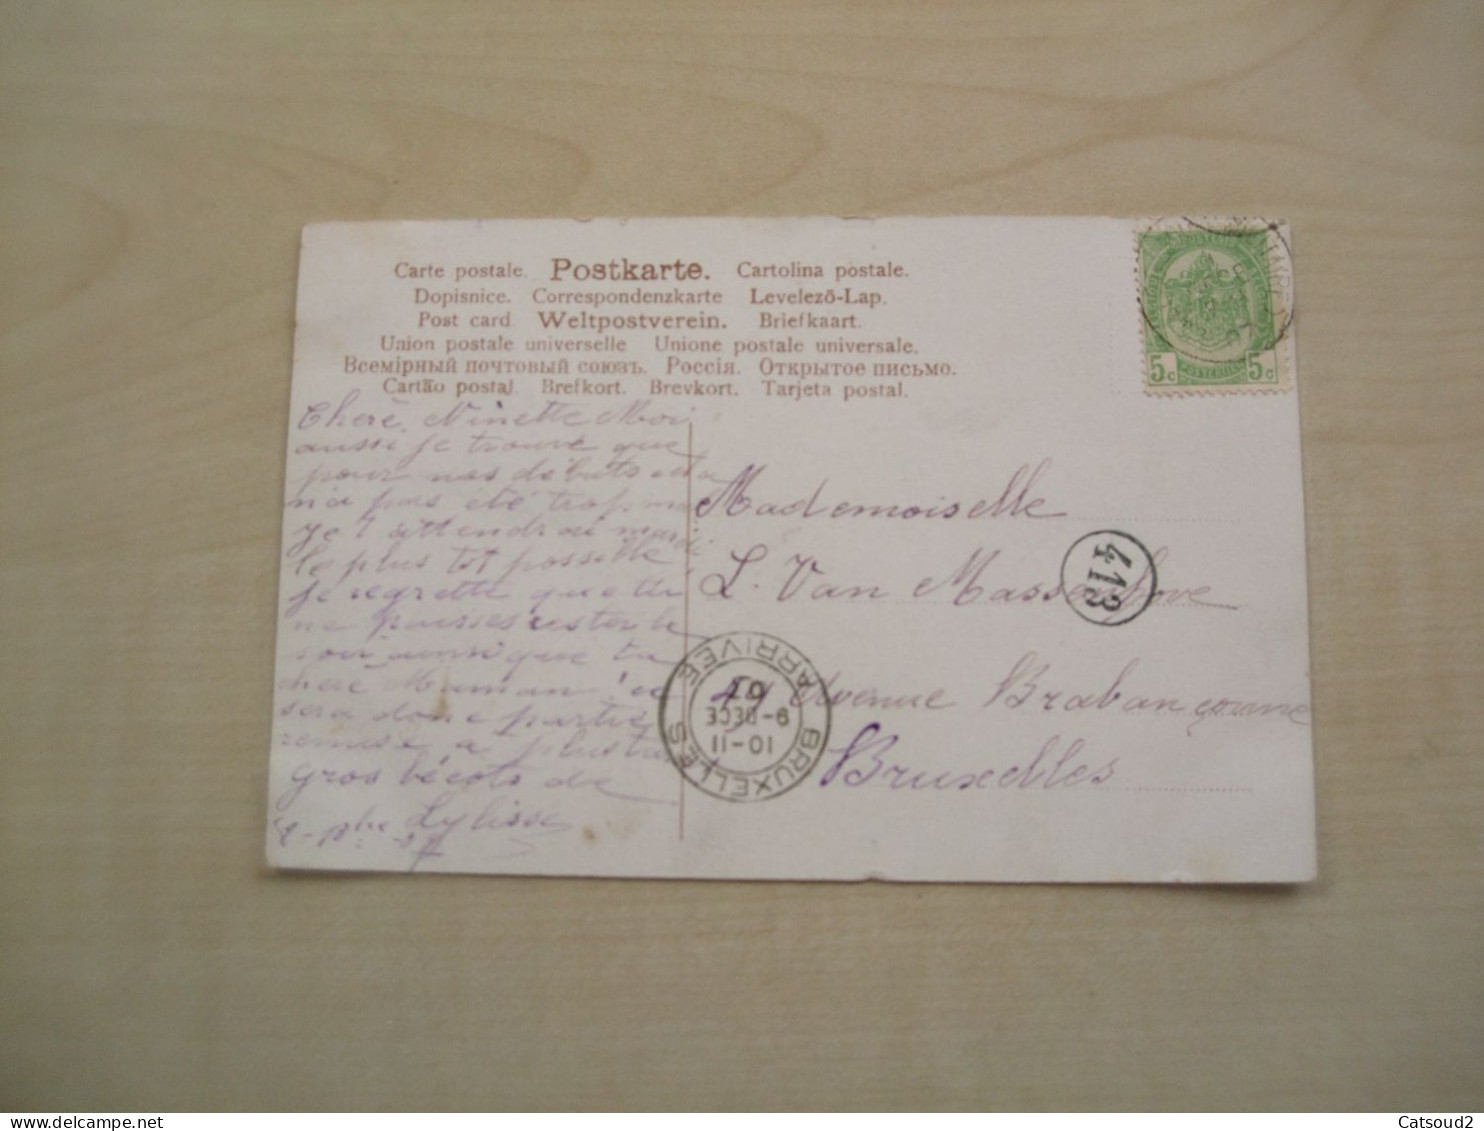 Carte postale. Postkarte. Cartolina postale.
Dopisnice. Correspondenzkarte Levelezö-Lap.
Post card Weltpostverein. Briefkaart.
Union postale universelle Unione postale universale.
Всемірный почтовый союзъ. Россія. Открытое письмо.
Cartão postal Brefkort. Brevkort. Tarjeta postal.
5c 5c
Cheré Ninette Moi
aussi je trouve que
pour nos débuts cela
n'a pas été trop mal
je t'attendrai mardi
le plus tot possible
je regrette que tu
ne puisses rester le
soir ainsi que ta
cheré Maman
sera donc partie
remise a plus tard
gros bécots de
Lylisse
8-Xbre 07
Mademoiselle
L. Van Massenhove
Avenue Brabançonne
Bruxelles
413
BRUXELLES ARRIVEE
10-11
9-DECE
07
Catsoud2